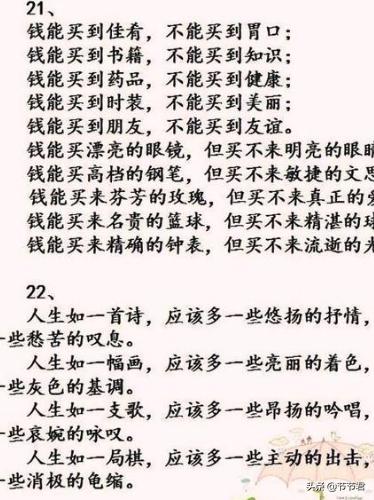 21、
钱能买到佳肴，不能买到胃口；
钱能买到书籍，不能买到知识；
钱能买到药品，不能买到健康；
钱能买到时装，不能买到美丽；
钱能买到朋友，不能买到友谊。
钱能买漂亮的眼镜，但买不来明亮的眼
钱能买高档的钢笔，但买不来敏捷的文思
钱能买来芬芳的玫瑰，但买不来真正的
钱能买来名贵的篮球，但买不来精湛的球
钱能买来精确的钟表，但买不来流逝的
22、
人生如一首诗，应该多一些悠扬的抒情，
一些愁苦的叹息。
人生如一幅画，应该多一些亮丽的着色，
一些灰色的基调。
人生如一支歌，应该多一些昂扬的吟唱，
一些哀婉的咏叹。
人生如一局棋，应该多一些主动的出击，
一些消极的龟缩。
头条 @节节君